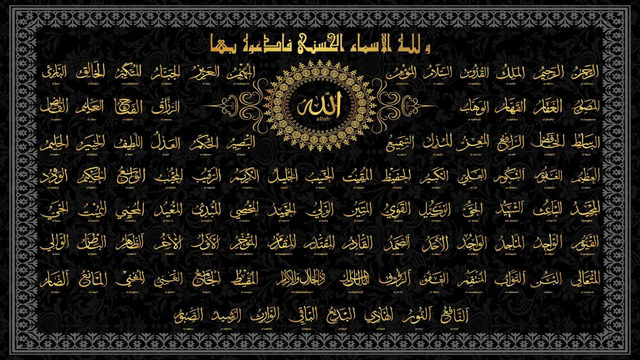 و لله الاسماء الحسنى فادعوه بها
الله
الرحمن الرحيم الملك القدوس السلام المؤمن المهيمن العزيز الجبار المتكبر الخالق البارئ
المصور الغفار القهار الوهاب الرزاق الفتاح العليم القابض
الباسط الخافض الرافع المعز المذل السميع البصير الحكم العدل اللطيف الخبير الحليم
العظيم الغفور الشكور العلي الكبير الحفيظ المقيت الحسيب الجليل الكريم الرقيب المجيب الواسع الحكيم الودود
المجيد الباعث الشهيد الحق الوكيل القوي المتين الولي الحميد المحصي المبدئ المعيد المحيي المميت الحي
القيوم الواجد الماجد الواحد الاحد الصمد القادر المقتدر المقدم المؤخر الأول الآخر الظاهر الباطن الوالي
المتعالي البر التواب المنتقم العفو الرؤوف مالك الملك ذو الجلال والإكرام المقسط الجامع الغني المغني المانع الضار
النافع النور الهادي البديع الباقي الوارث الرشيد الصبور